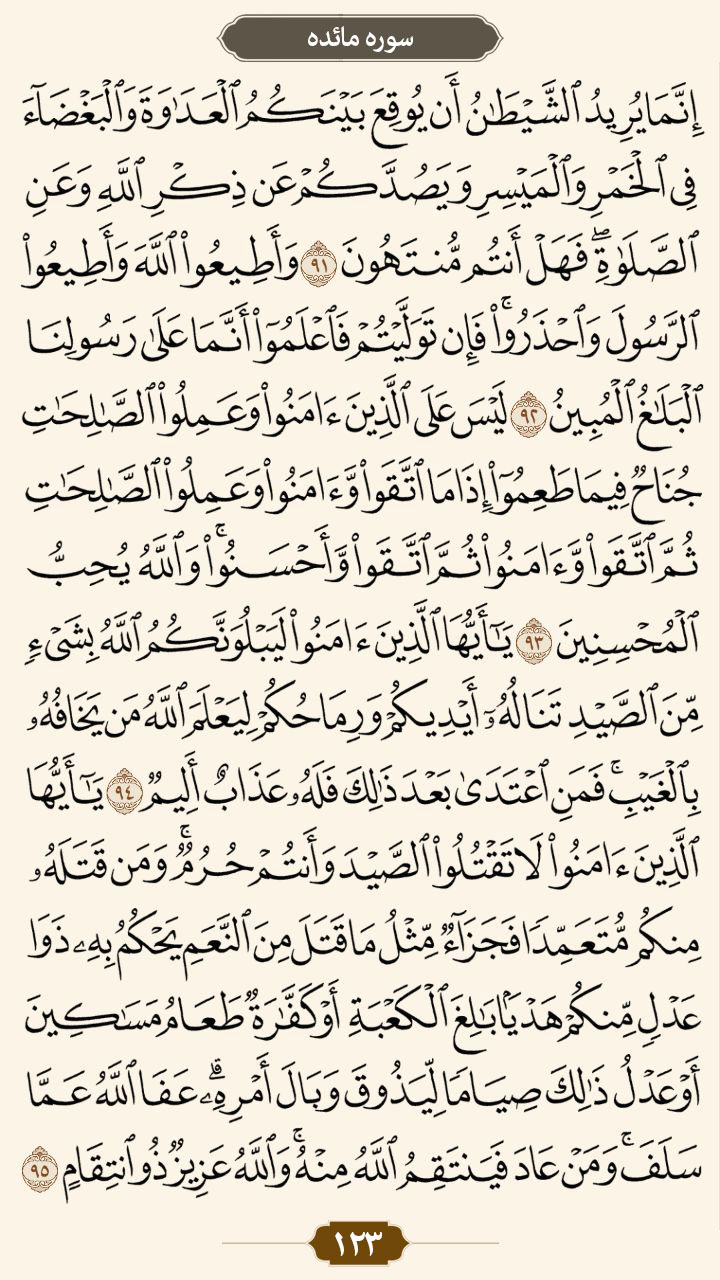 سوره مائده
إِنَّمَا يُرِيدُ ٱلشَّيۡطَٰنُ أَن يُوقِعَ بَيۡنَكُمُ ٱلۡعَدَٰوَةَ وَٱلۡبَغۡضَآءَ
فِي ٱلۡخَمۡرِ وَٱلۡمَيۡسِرِ وَيَصُدَّكُمۡ عَن ذِكۡرِ ٱللَّهِ وَعَنِ
ٱلصَّلَوٰةِۖ فَهَلۡ أَنتُم مُّنتَهُونَ ٩١ وَأَطِيعُواْ ٱللَّهَ وَأَطِيعُواْ
ٱلرَّسُولَ وَٱحۡذَرُواْۚ فَإِن تَوَلَّيۡتُمۡ فَٱعۡلَمُوٓاْ أَنَّمَا عَلَىٰ رَسُولِنَا
ٱلۡبَلَٰغُ ٱلۡمُبِينُ ٩٢ لَيۡسَ عَلَى ٱلَّذِينَ ءَامَنُواْ وَعَمِلُواْ ٱلصَّٰلِحَٰتِ
جُنَاحٞ فِيمَا طَعِمُوٓاْ إِذَا مَا ٱتَّقَواْ وَّءَامَنُواْ وَعَمِلُواْ ٱلصَّٰلِحَٰتِ
ثُمَّ ٱتَّقَواْ وَّءَامَنُواْ ثُمَّ ٱتَّقَواْ وَّأَحۡسَنُواْۚ وَٱللَّهُ يُحِبُّ
ٱلۡمُحۡسِنِينَ ٩٣ يَٰٓأَيُّهَا ٱلَّذِينَ ءَامَنُواْ لَيَبۡلُوَنَّكُمُ ٱللَّهُ بِشَيۡءٖ
مِّنَ ٱلصَّيۡدِ تَنَالُهُۥٓ أَيۡدِيكُمۡ وَرِمَاحُكُمۡ لِيَعۡلَمَ ٱللَّهُ مَن يَخَافُهُۥ
بِٱلۡغَيۡبِۚ فَمَنِ ٱعۡتَدَىٰ بَعۡدَ ذَٰلِكَ فَلَهُۥ عَذَابٌ أَلِيمٞ ٩٤ يَٰٓأَيُّهَا
ٱلَّذِينَ ءَامَنُواْ لَا تَقۡتُلُواْ ٱلصَّيۡدَ وَأَنتُمۡ حُرُمٞۚ وَمَن قَتَلَهُۥ
مِنكُم مُّتَعَمِّدٗا فَجَزَآءٞ مِّثۡلُ مَا قَتَلَ مِنَ ٱلنَّعَمِ يَحۡكُمُ بِهِۦ ذَوَا
عَدۡلٖ مِّنكُمۡ هَدۡيَۢا بَٰلِغَ ٱلۡكَعۡبَةِ أَوۡ كَفَّٰرَةٞ طَعَامُ مَسَٰكِينَ
أَوۡ عَدۡلُ ذَٰلِكَ صِيَامٗا لِّيَذُوقَ وَبَالَ أَمۡرِهِۦۗ عَفَا ٱللَّهُ عَمَّا
سَلَفَۚ وَمَنۡ عَادَ فَيَنتَقِمُ ٱللَّهُ مِنۡهُۚ وَٱللَّهُ عَزِيزٞ ذُو ٱنتِقَامٍ ٩٥
١٢٣